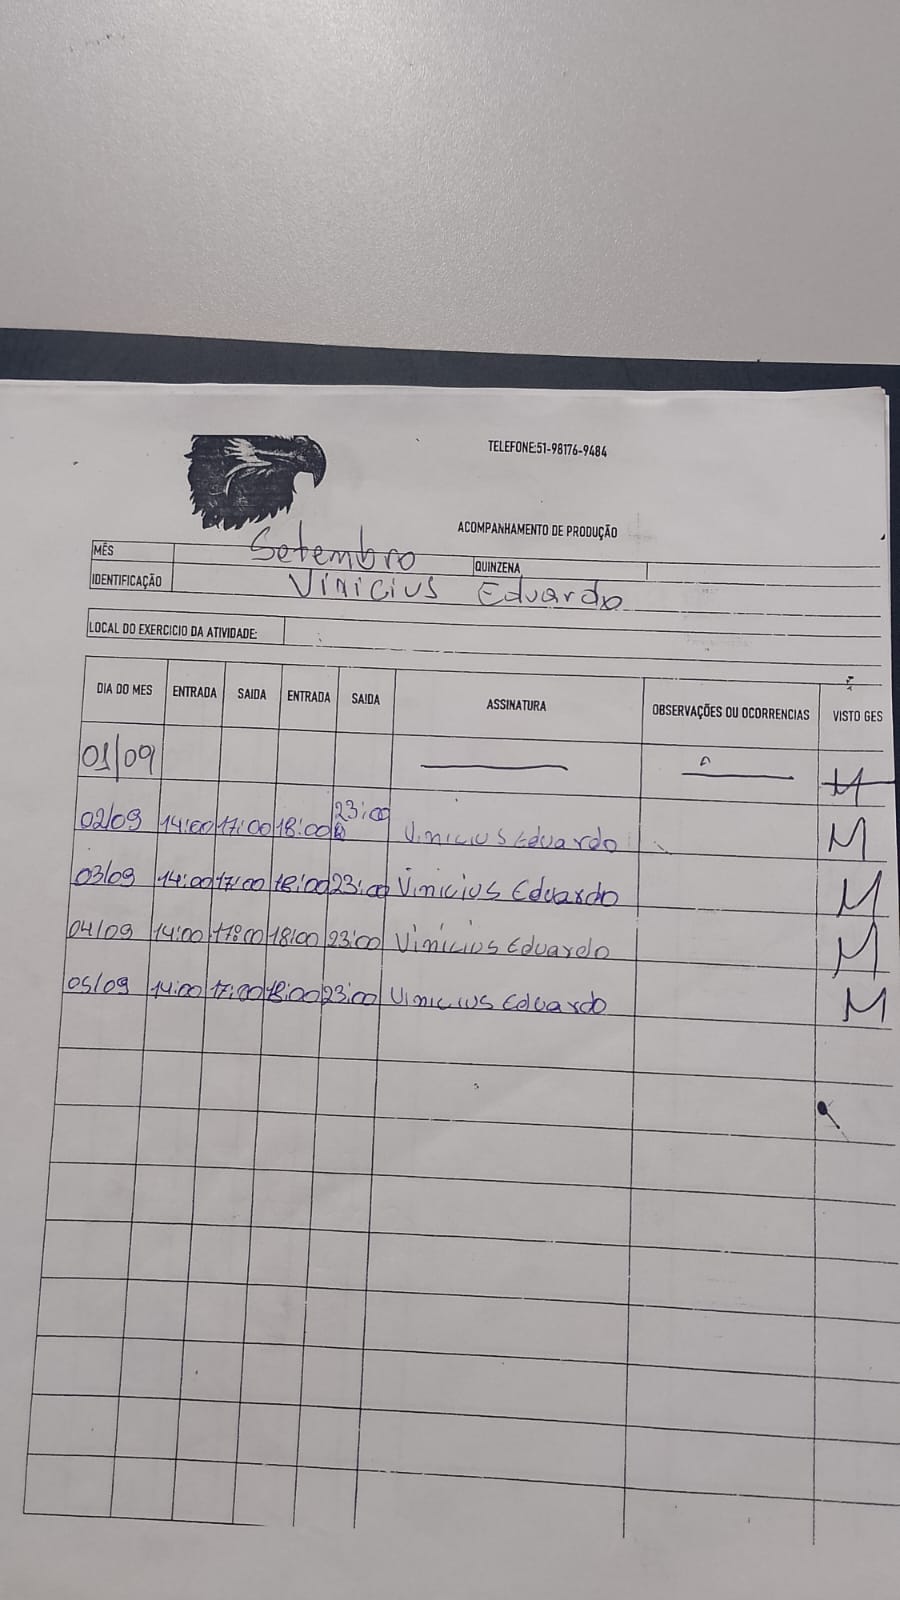 TELEFONE:51-98176-9484
ACOMPANHAMENTO DE PRODUÇÃO
MÊS Setembro QUINZENA
IDENTIFICAÇÃO Vinicius Eduardo
LOCAL DO EXERCICIO DA ATIVIDADE:
DIA DO MES ENTRADA SAIDA ENTRADA SAIDA ASSINATURA OBSERVAÇÕES OU OCORRENCIAS VISTO GES
01/09 M
02/09 14:00 17:00 18:00 23:00 Vinicius Eduardo M
03/09 14:00 17:00 18:00 23:00 Vinicius Eduardo M
04/09 14:00 17:00 18:00 23:00 Vinicius Eduardo M
05/09 14:00 17:00 18:00 23:00 Vinicius Eduardo M